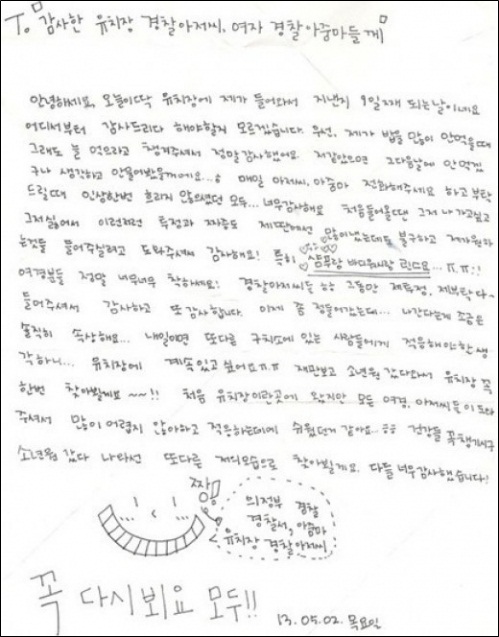 To 감사한 유치장 경찰아저씨, 여자 경찰아줌마들께
안녕하세요, 오늘이딱 유치장에 제가 들어와서 지낸지 9일째 되는날이네요
어디서부터 감사드리다 해야할지 모르겠습니다. 우선, 제가 밥을 많이 안먹을때
그래도 물 먹으라고 챙겨주셔서 정말감사했어요. 저같았으면 그다음날에 안먹겠
구나 생각하고 안물어봤을꺼에요... 매일 아저씨, 아줌마 전화해주세요 하고 부탁
드릴때 인상한번 흐리지 않으셨던 모두... 너무감사해요 처음들어올땐 그저 나가고싶고
그저싫어서 이런저런 투정과 짜증도 제딴에선 많이냈는데도 불구하고 제가원하
는것들 들어주실려고 도와주셔서 감사해요! 특히 샴푸랑 바디워시랑 린스요... ㅠㅠ!!
여경분들 정말 너무너무 착하세요! 경찰아저씨들 동안 제투정, 제부탁다
들어주셔서 감사하고 또 감사합니다. 이제 좀 정들어갔는데... 나간다는게 조금은
솔직히 속상해요... 내일이면 또다른 구치소에 있는 사람들에게 적응해야한생
각하니... 유치장에 계속있고 싶어요ㅠㅠ 재판보고 소년원 갔다와서 유치장 꼭
한번 찾아뵐게요 ~~!! 처음 유치장이란곳에 왔지만 모든 여경, 아저씨들이 도와
주셔서 많이 어렵지 않아하고 적응하는데에 쉬웠던거 같아요 ㅎㅎ 건강들 꼭챙기시구
소년원 갔다 나와선 또다른 저의모습으로 찾아뵐게요. 다들 너무감사했습니다!
짱!
의정부 경찰
경찰서, 아줌마
유치장 경찰아저씨
꼭 다시뵈요 모두!!
13.05.02. 목요일